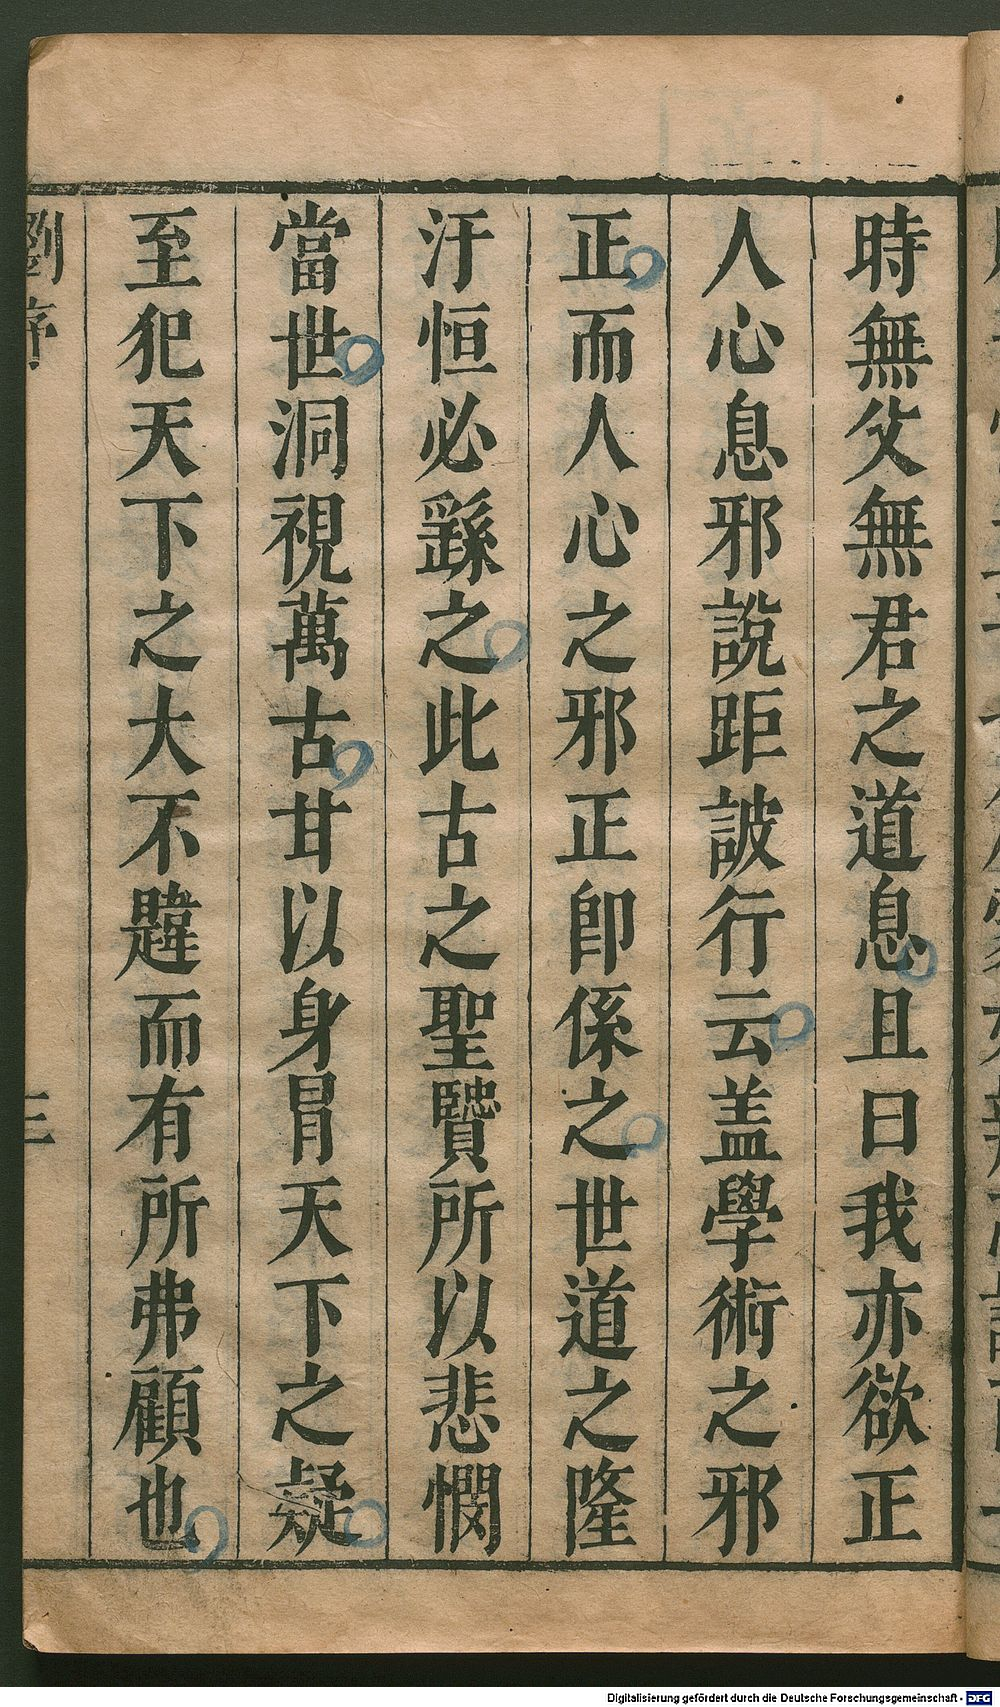 時無父無君之道息且曰我亦欲正
人心息邪說距詖行云盖學術之邪
正而人心之邪正卽係之世道之隆
汙恒必繇之此古之聖賢所以悲憫
當世洞視萬古甘以身冒天下之疑
至犯天下之大不韙而有所弗顧也
劉序
三
Digitalisierung gefördert durch die Deutsche Forschungsgemeinschaft - DFG